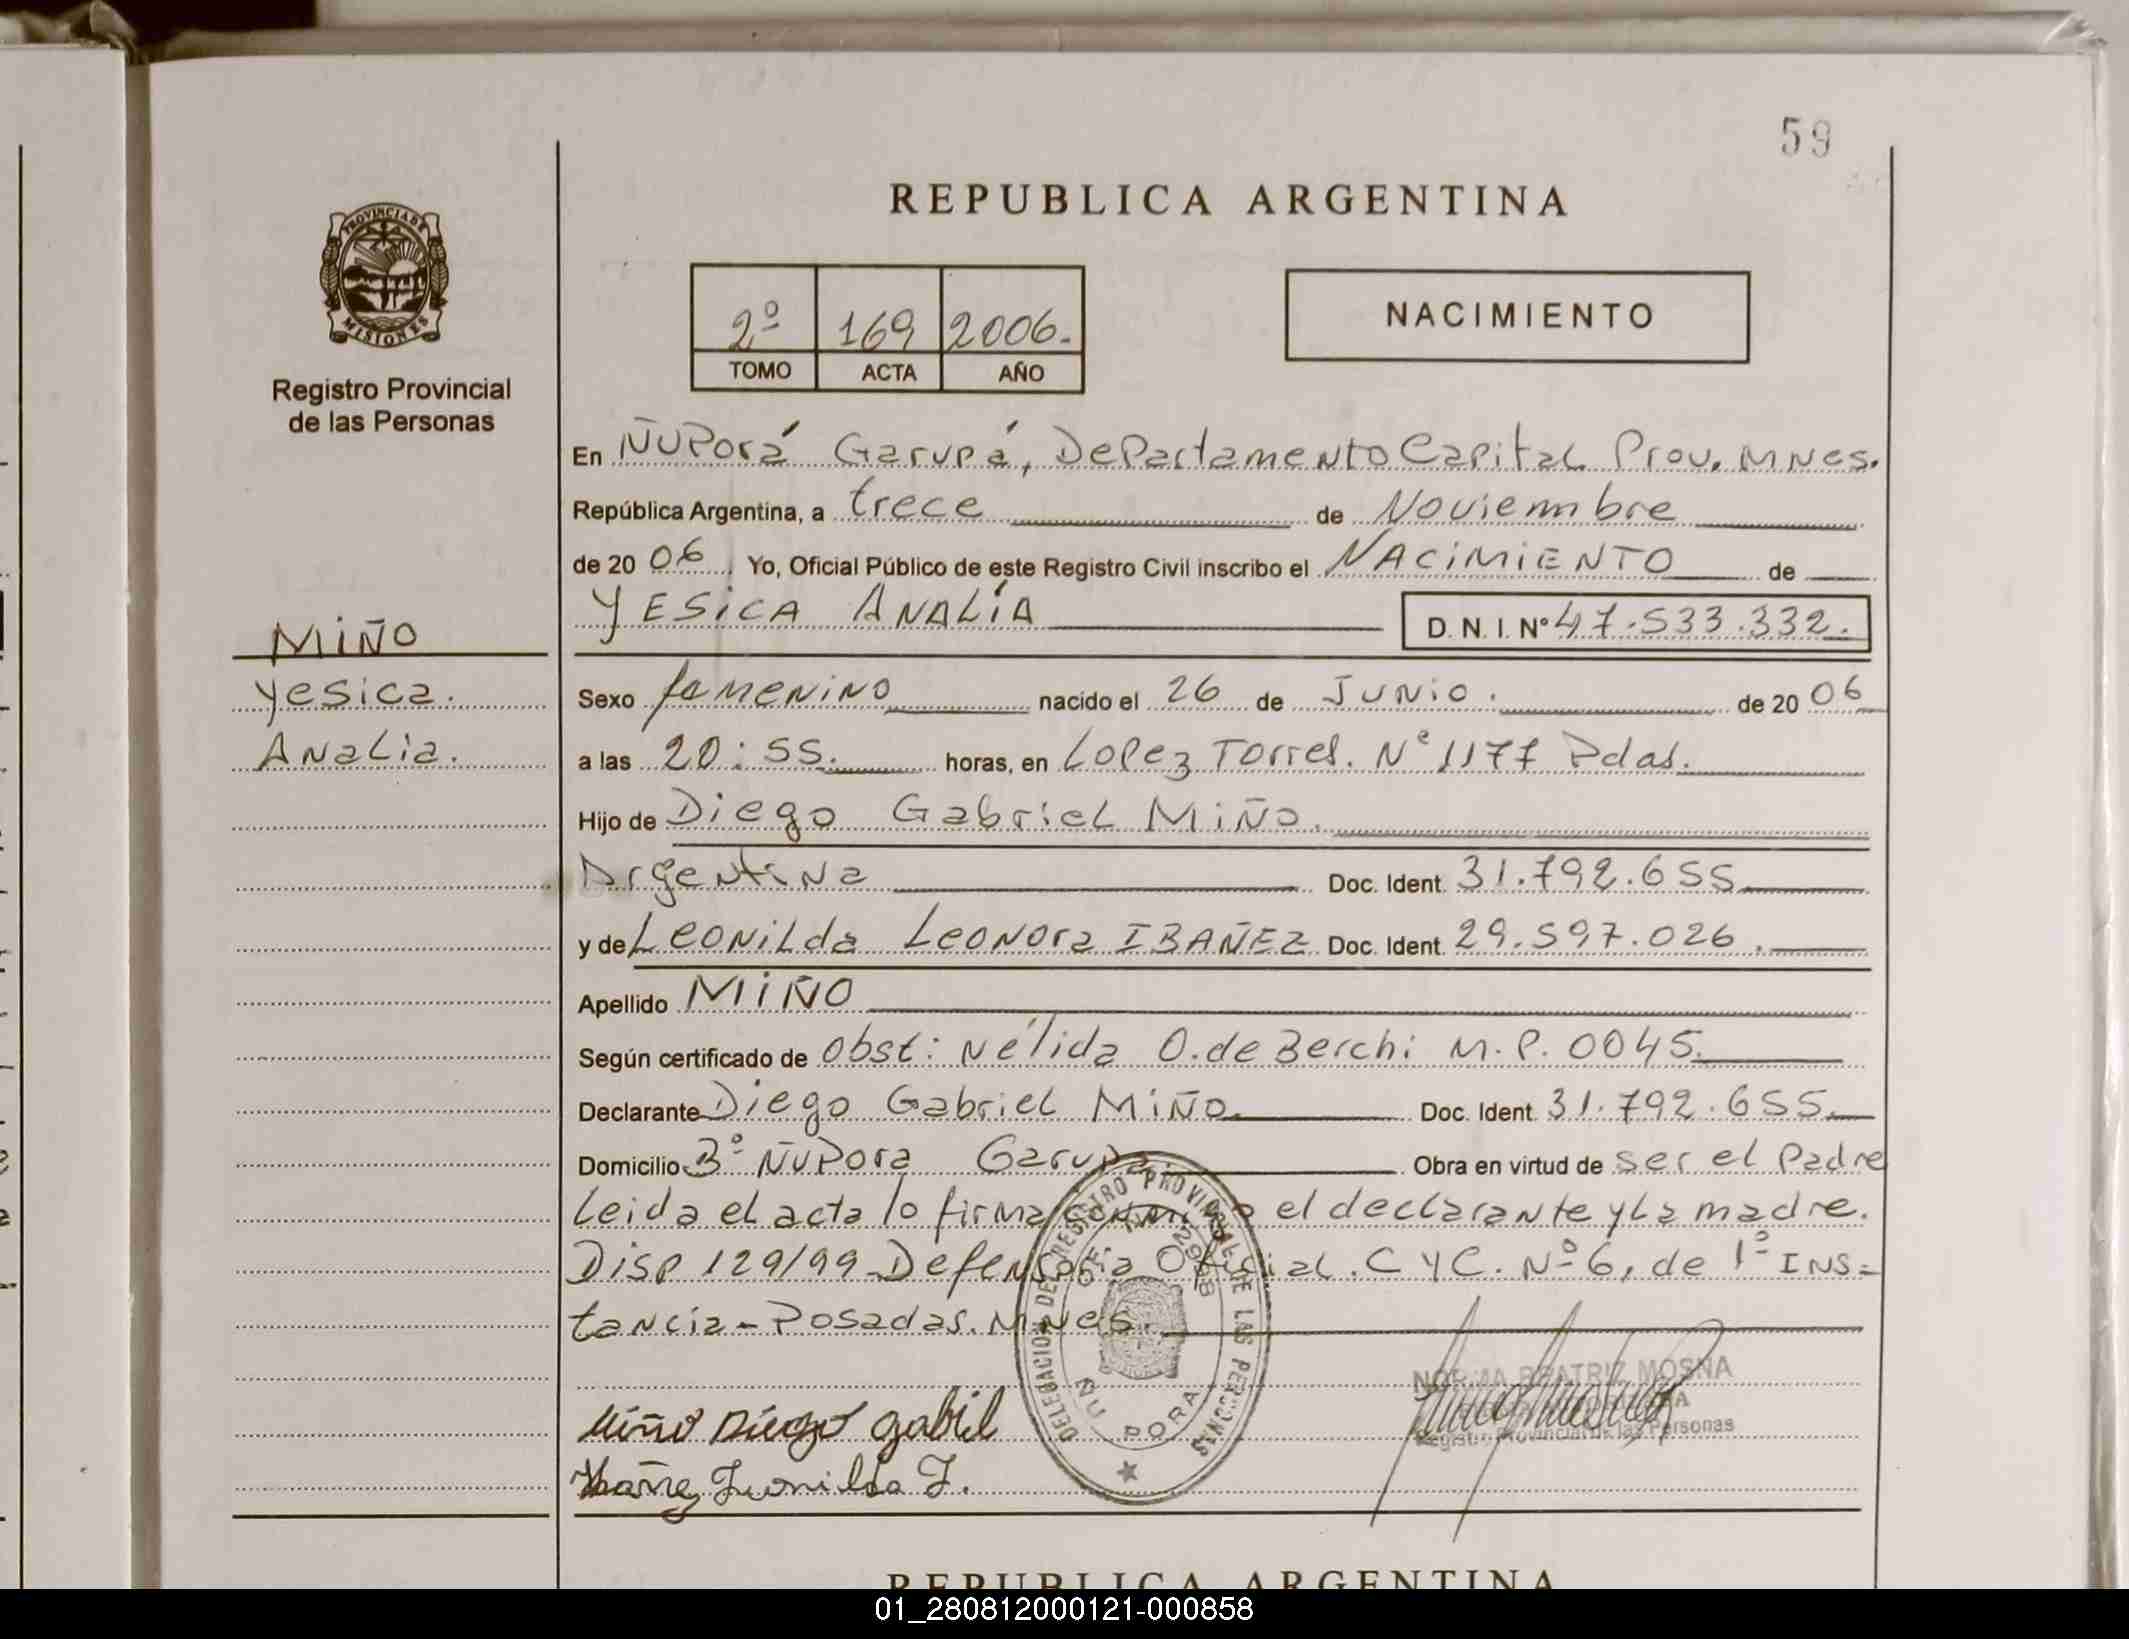 59
REPUBLICA ARGENTINA
PROVINCIA DE
MISIONES
Registro Provincial
de las Personas
2º 169 2006.
TOMO ACTA AÑO
NACIMIENTO
En ÑUPorá Garupá, Departamento Capital Prov. MNes.
República Argentina, a trece de Noviembre
de 20 06 Yo, Oficial Público de este Registro Civil inscribo el NACIMIENTO de
YESICA ANALÍA D. N. I. Nº 47.533.332.
MIÑO
Yesica.
Analia.
Sexo femenino nacido el 26 de Junio. de 20 06
a las 20:55. horas, en Lopez Torres. Nº 1177 Pdas.
Hijo de Diego Gabriel Miño.
Argentina Doc. Ident. 31.792.655
y de Leonilda Leonora IBAÑEZ Doc. Ident. 29.597.026.
Apellido MIÑO
Según certificado de obst: Nélida O. de Berchi M.P. 0045.
Declarante Diego Gabriel Miño. Doc. Ident. 31.792.655.
Domicilio Bº ÑUPora Garupa Obra en virtud de ser el Padre
Leida el acta lo firma el declarante y La madre.
Disp 129/99 Defensoria Oficial. C y C. Nº 6, de 1º INS=
tancia - Posadas. MNes.
DELEGACION DEL REGISTRO PROVINCIAL DE LAS PERSONAS
ÑU PORA
NORMA BEATRIZ MOSNA
Registro Provincial de las Personas
Miño Diego gabil
REPUBLICA ARGENTINA
01_280812000121-000858